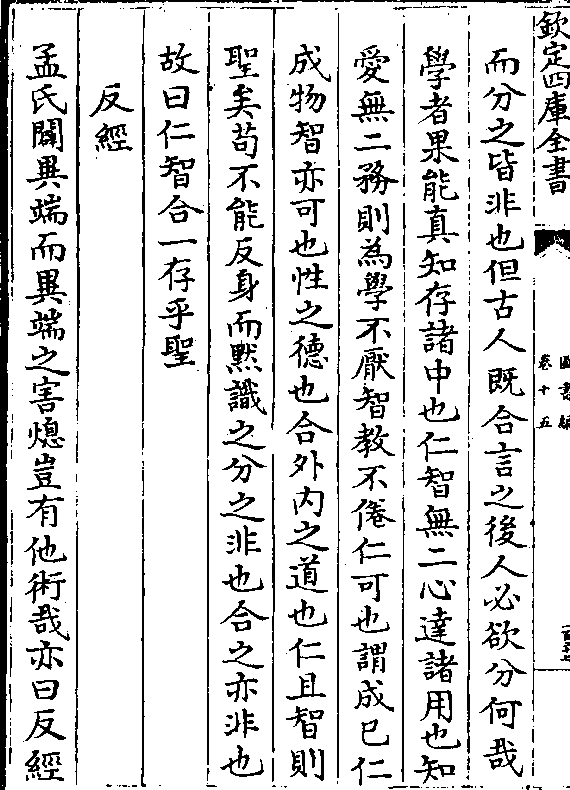 欽定四庫全書
卷十五
而分之皆非也但古人既合言之後人必欲分何哉
學者果能真知存諸中也仁智無二心達諸用也知
愛無二務則為學不厭智教不倦仁可也謂成已仁
成物智亦可也性之德也合外内之道也仁且智則
聖矣苟不能反身而黙識之分之非也合之亦非也
故曰仁智合一存乎聖
反經
孟氏闢異端而異端之害熄豈有他術哉亦曰反經